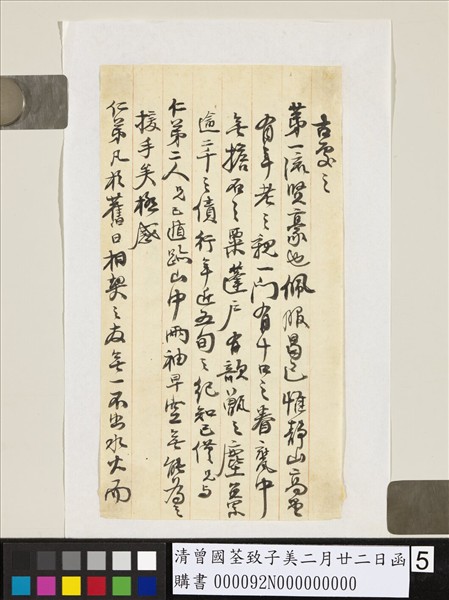 古處之
第一流賢豪也佩服曷已惟靜山高堂
有年老之親一門有十口之眷甕中
無擔石之粟蓬戶有甑之塵
逾二千之債行年近五旬之紀知己僅兄与
仁弟二人兄已遁跡山中兩袖早空無能為之
援手矣極感
仁弟凡於舊日相契之友無一不出水火而
清曾國荃致子美二月廿二日函
購書 000092N000000000
5